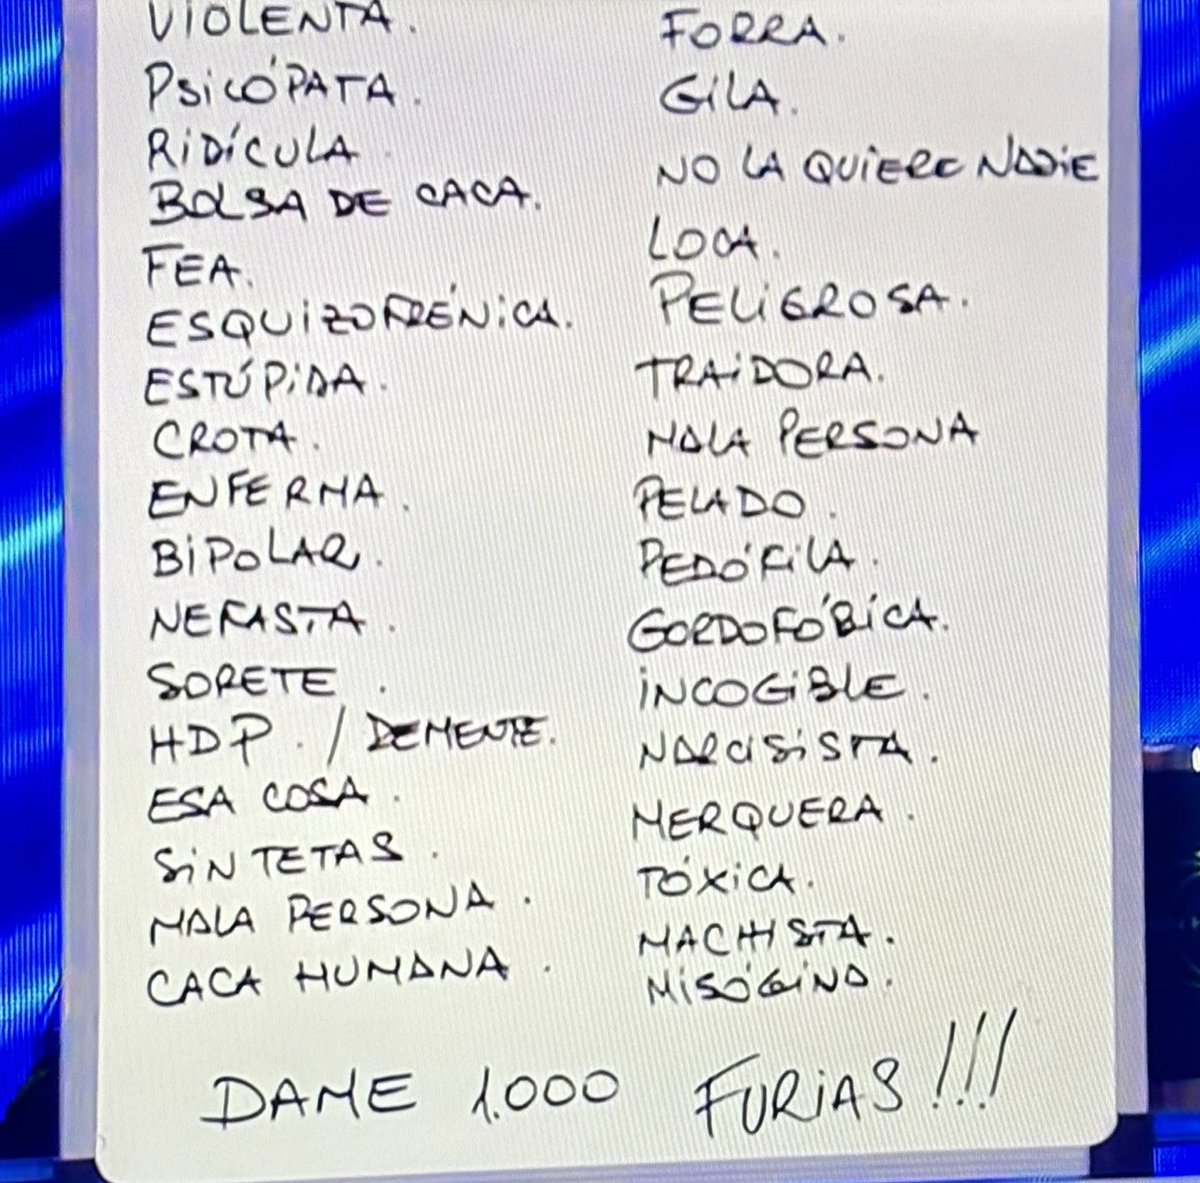 VIOLENTA.
PSICÓPATA.
RIDÍCULA.
BOLSA DE CACA.
FEA.
ESQUIZOFRÉNICA.
ESTÚPIDA.
CROTA.
ENFERMA.
BIPOLAR.
NEFASTA.
SORETE.
HDP. / DEMENTE.
ESA COSA.
SIN TETAS.
MALA PERSONA.
CACA HUMANA.
FORRA.
GILA.
NO LA QUIERE NADIE
LOCA.
PELIGROSA.
TRAIDORA.
MALA PERSONA
PELADO.
PEDÓFILA.
GORDOFÓBICA.
INCOGIBLE.
NARCISISTA.
MERQUERA.
TÓXICA.
MACHISTA.
MISÓGINO.
DAME 1.000 FURIAS!!!